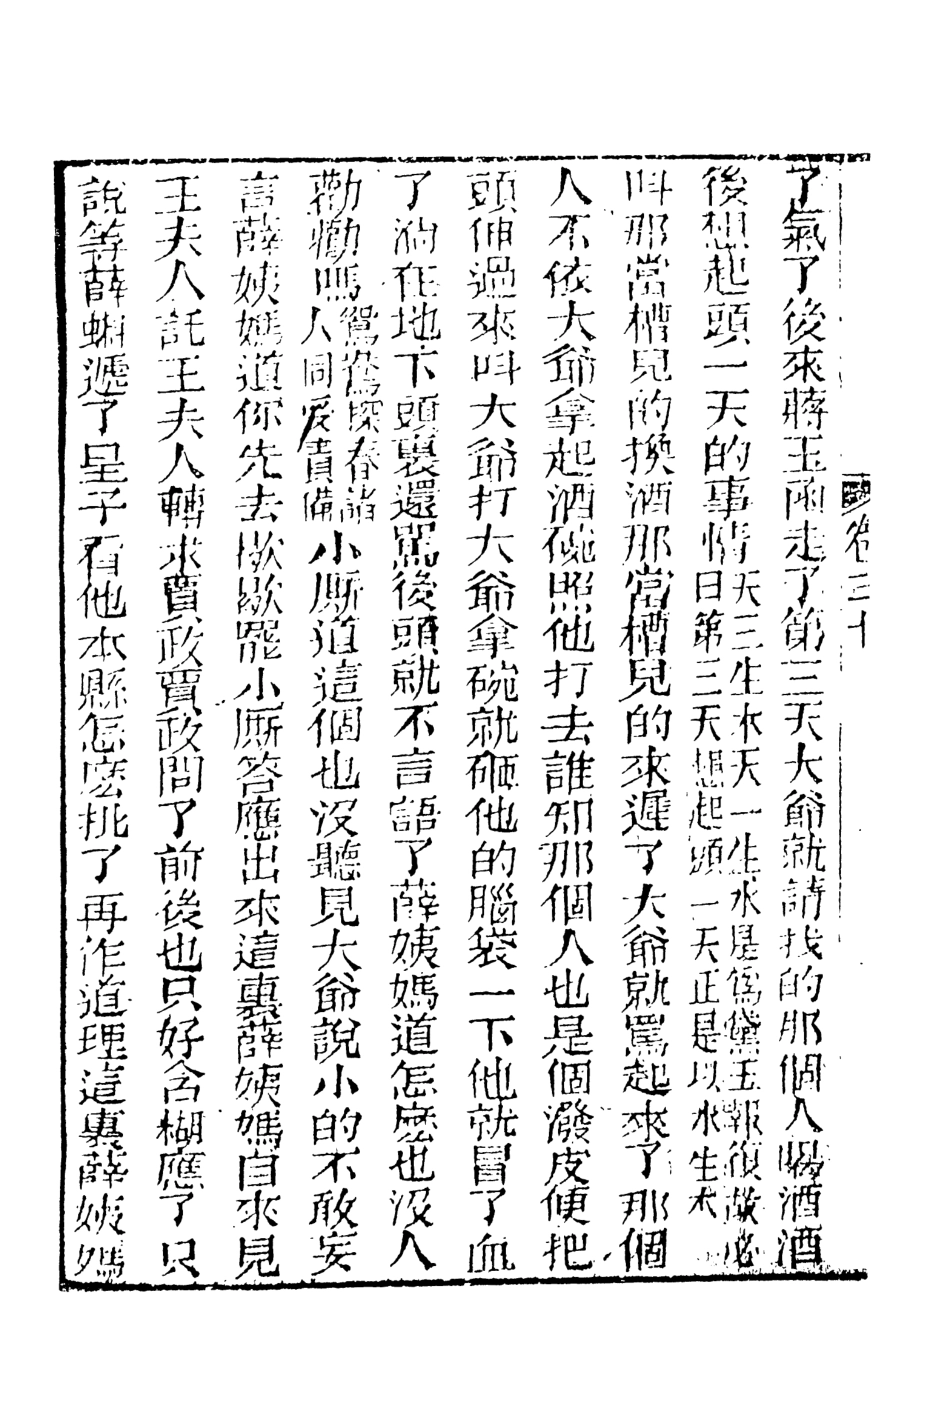 卷三十
了氣了後來蔣玉函走了第三天大爺就請找的那個人喝酒酒
後想起頭一天的事情天三生木天一生水是爲黛玉報復故必
日第三天想起頭一天正是以水生木
叫那當槽兒的換酒那當槽兒的來遲了大爺就罵起來了那個
人不依大爺拿起酒碗照他打去誰知那個人也是個潑皮便把
頭伸過來叫大爺打大爺拿碗就砸他的腦袋一下他就冒了血
了淌在地下頭裏還罵後頭就不言語了薛姨媽道怎麽也沒人
勸勸嗎鴛鴦探春諸
人同爱責備小厮道這個也沒聽見大爺說小的不敢妄
言薛姨媽道你先去歇歇罷小厮答應出來這裏薛姨媽自來見
王夫人託王夫人轉求賈政賈政問了前後也只好含糊應了只
說等薛蝌遞了呈子看他本縣怎麽批了再作道理這裏薛姨媽